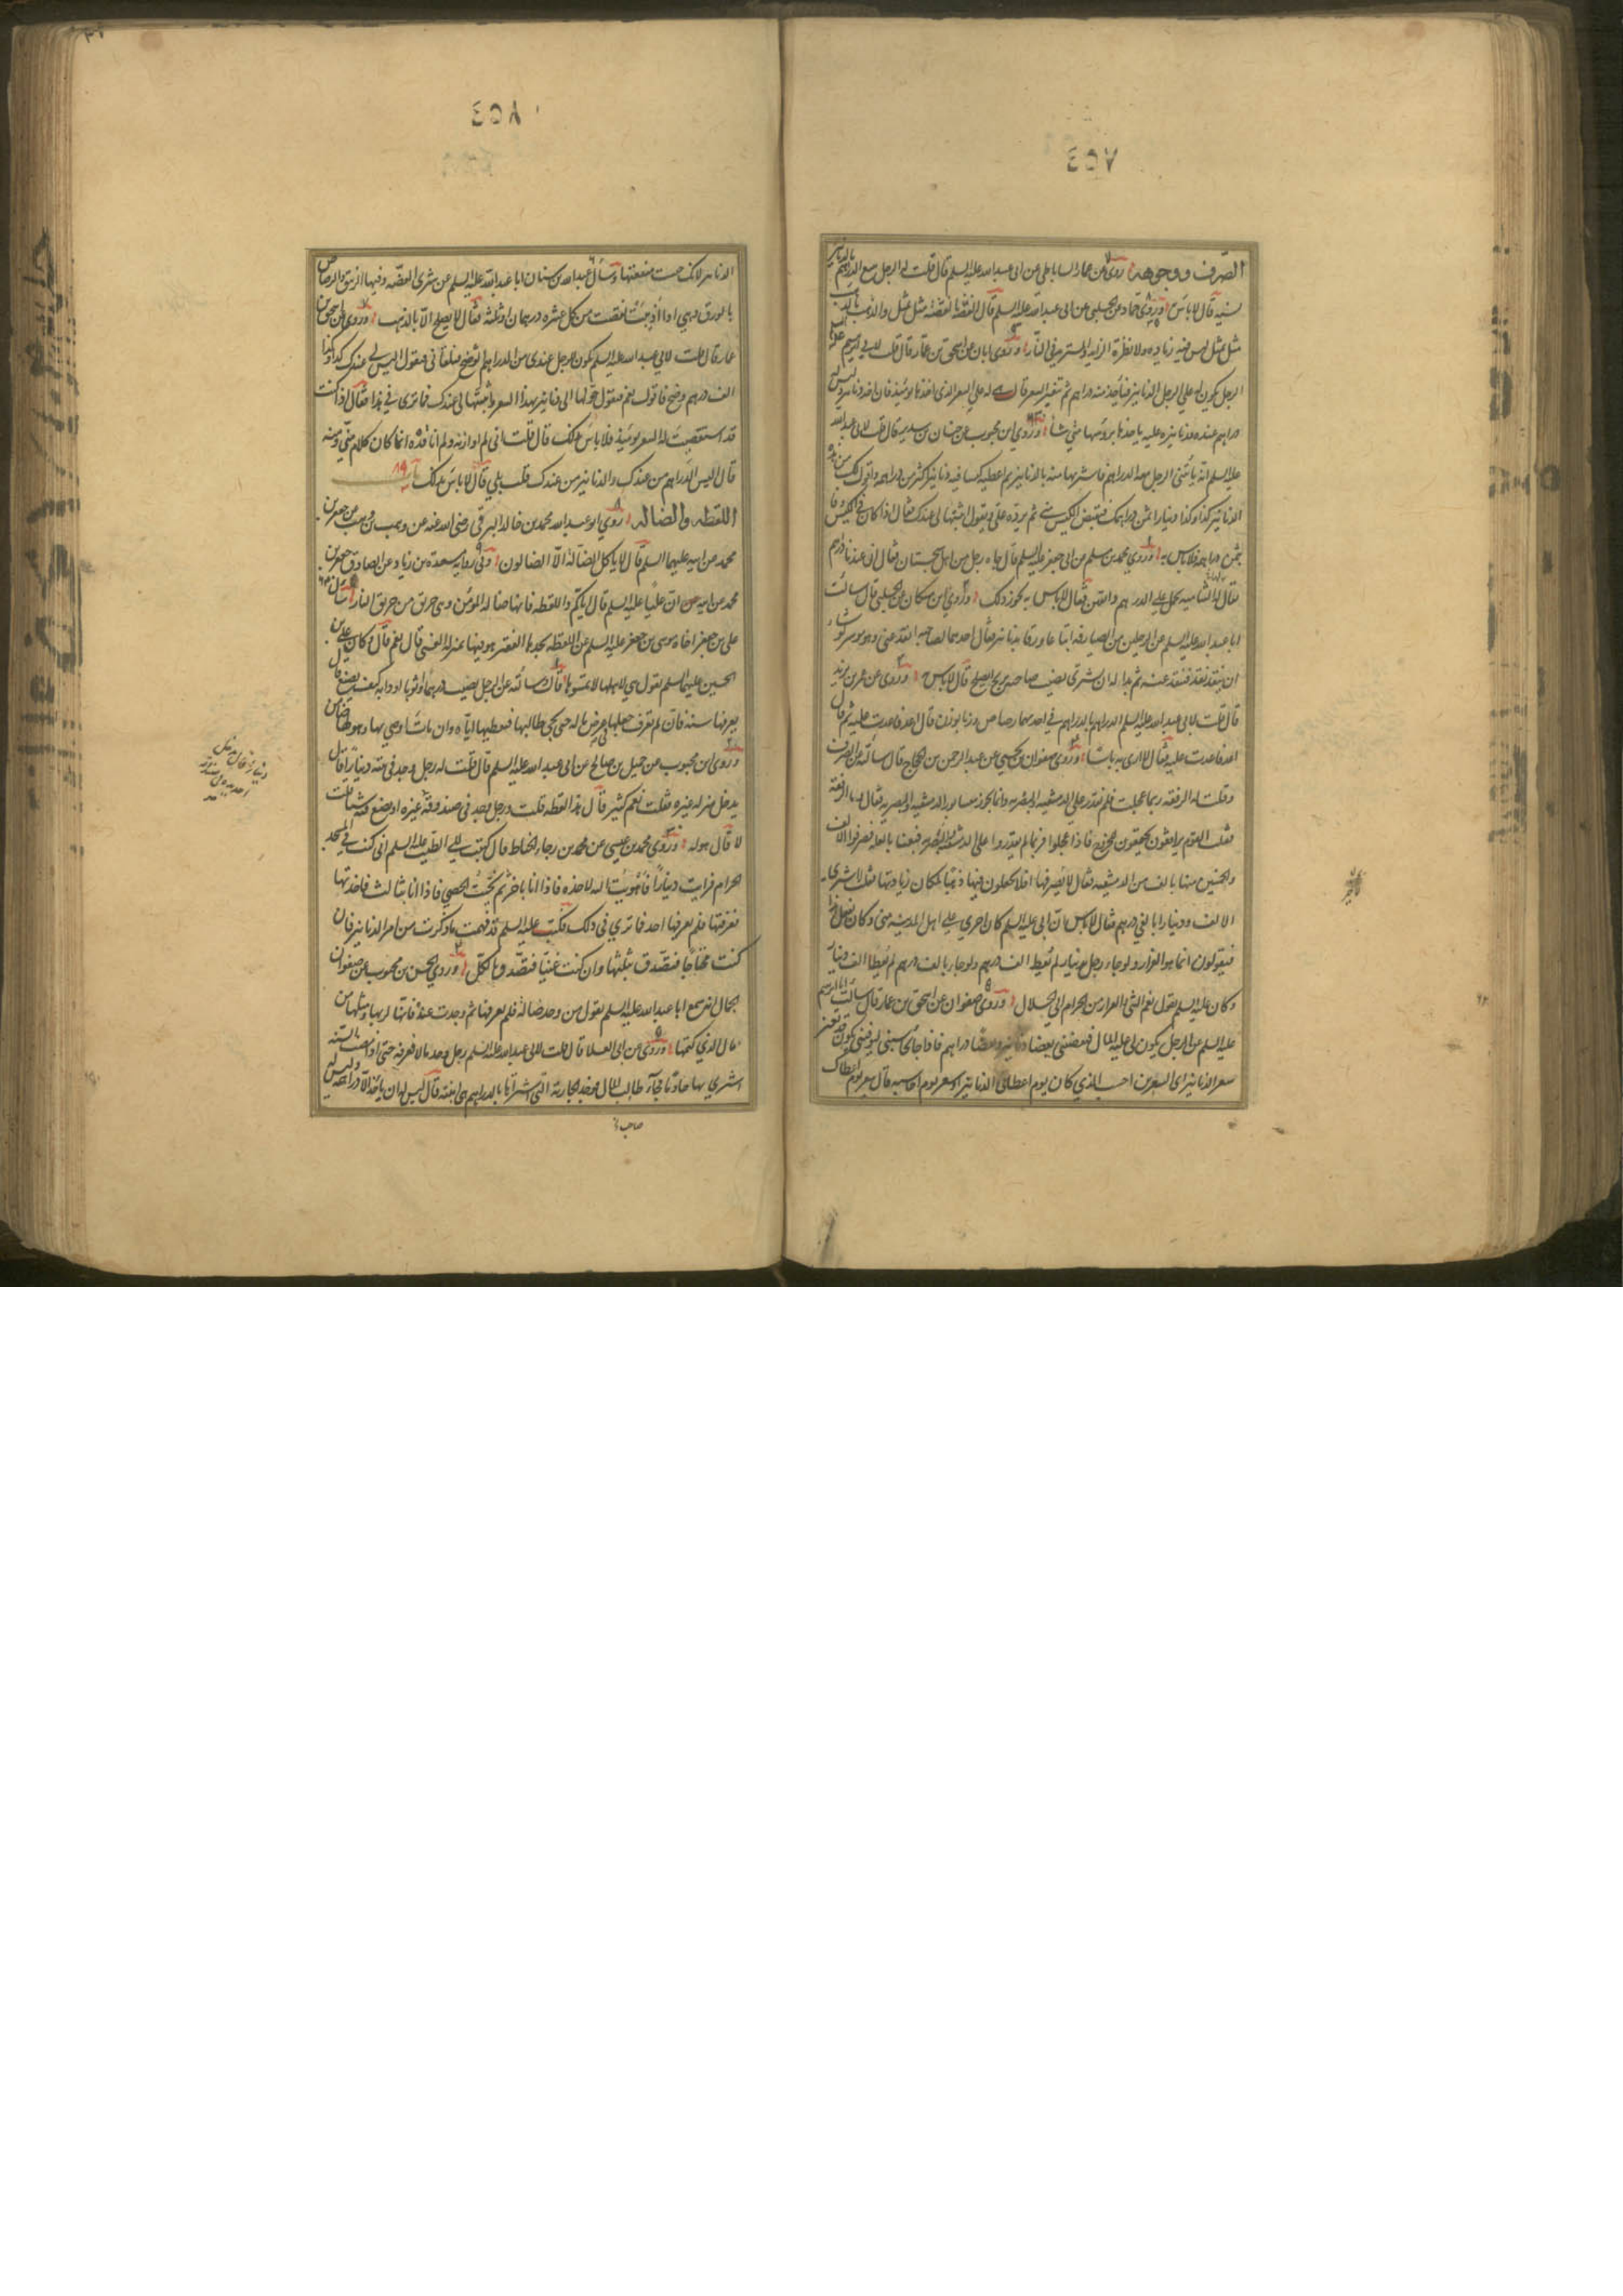 ٤٥٧
الصرف ووجوهه روى عن عمار الساباطي عن ابى عبد الله عليه السلم قال قلت له الرجل يبيع الدراهم بالدنانير
نسيه قال لا باس وروى حماد عن الحلبي عن ابى عبد الله عليه السلم قال الفضة بالفضة مثل بمثل والذهب بالذهب
مثل بمثل ليس فيه زيادة ولا نظرة الزايد والمستزيد في النار وروى ابان عن اسحق بن عمار قال قلت لابي ابرهيم عليه السلم
الرجل يكون له على الرجل الدنانير فيأخذ منه دراهم ثم تتغير السعر قال هي له على السعر الذي اخذها يومئذ فان اخذ دنانير وليس له
دراهم عنده فدنانيره عليه ياخذها برؤسها متى شاء وروى ابن محبوب عن حنان بن سدير قال قلت لابي عبد الله
عليه السلم انه يأتنى الرجل معه الدراهم فاشتريها منه بالدنانير ثم اعطيه كيسا فيه دنانير اكثر من دراهمه واقول لك من هذه
الدنانير كذا وكذا دينارا ثمن دراهمك فيقبض الكيس منى ثم يرده على ويقول اثبتها لى عندك فقال ان كان في الكيس وفا
بثمن دراهمه فلا باس به وروى محمد بن مسلم عن ابى جعفر عليه السلم قال جاءه رجل من اهل سجستان فقال ان عندنا دراهم
يقال لها الشاهيه تحمل على الدرهم دانقين فقال لا باس به يجوز ذلك وروى ابن مسكان عن الحلبي قال سألت
ابا عبد الله عليه السلم عن الرجلين من الصيارفه ابتاعا ورقا بدنانير فقال احدهما لصاحبه انقد عنى وهو موسر لو شاء
ان ينقد نقد فينقد عنه ثم بدا له ان يشترى نصيب صاحبه بربح ايصلح قال لا باس وروى عن عمر بن يزيد
قال قلت لابي عبد الله عليه السلم الدراهم بالدراهم في احدهما رصاص وزنا بوزن قال اعد فاعدت عليه ثم قال
اعد فاعدت عليه فقال لا ارى به باسا وروى صفوان بن يحيى عن عبد الرحمن بن الحجاج قال سألته عن الصرف
وقلت له الرفقه ربما عجلت فلم نقدر على الدمشقيه والبصريه وانما يجوز بسابور الدمشقيه والبصريه فقال وما الرفقه
فقلت القوم يترافقون ويجتمعون للخروج فاذا عجلوا فربما لم يقدروا على الدمشقيه والبصريه فبعثنا بالغله فصرفوا الالف
والخمسين منها بالف من الدمشقيه فقال لا خير فيها افلا تجعلون فيها ذهبا لمكان زيادتها فقلت له اشترى
الالف ودينارا بالفي درهم فقال لا باس ان ابى عليه السلم كان اجرى على اهل المدينه منى وكان يفعل هذا
فيقولون انما هو الفرار ولو جاء رجل بدينار لم يعط الف درهم ولو جاء بالف درهم لم يعط الف دينار
وكان عليه السلم يقول نعم الشئ الفرار من الحرام الى الحلال وروى صفوان عن اسحق بن عمار قال سألت ابا ابرهيم
عليه السلم عن الرجل يكون لى عليه المال فيقضيني بعضا دنانير وبعضا دراهم فاذا جاء يحاسبني ليوفيني يكون قد تغير
سعر الدنانير اي السعرين احسب الذي كان يوم اعطانى الدنانير او سعر يوم احاسبه قال سعر يوم اعطاك
٤٥٨
الدنانير لانك حبست منفعتها وسأل عبد الله بن سنان ابا عبد الله عليه السلم عن شرى الفضه وفيها الزيبق والرصاص
بالورق وهي اذا اذيبت نقصت من كل عشره درهمان او ثلثه فقال لا يصلح الا بالذهب وروى عن اسحق بن
عمار قال قلت لابي عبد الله عليه السلم يكون للرجل عندى من الدراهم الوضح فيلقاني فيقول اليس لى عندك كذا وكذا
الف درهم وضح فاقول نعم فيقول حولها الى دنانير بهذا السعر واثبتها لى عندك فما ترى في هذا فقال اذا كنت
قد استقصيت له السعر يومئذ فلا باس بذلك قال قلت انى لم اوازنه ولم اناقده انما كان كلام منى ومنه
قال اليس الدراهم من عندك والدنانير من عندك قلت بلى قال لا باس بذلك باب
اللقطه والضاله روى ابو عبد الله محمد بن خالد البرقى رضى الله عنه عن وهب بن وهب عن جعفر بن
محمد عن ابيه عليهما السلم قال لا ياكل الضالة الا الضالون وفى روايه مسعدة بن زياد عن الصادق جعفر بن
محمد عن ابيه ان عليا عليه السلم قال اياكم واللقطه فانها ضالة المؤمن وهى حريق من حريق النار وسأل
على بن جعفر اخاه موسى بن جعفر عليه السلم عن اللقطه يجدها الفقير هو فيها بمنزله الغنى قال نعم قال وكان على بن
الحسين عليهما السلم يقول هي لاهلها لا تمسوها قال وسألته عن الرجل يصيب درهما او ثوبا او دابه كيف يصنع قال
يعرفها سنة فان لم تعرف جعلها في عرض ماله حتى يجئ طالبها فيعطيها اياه وان مات اوصى بها وهو لها ضامن
وروى ابن محبوب عن جميل بن صالح عن ابى عبد الله عليه السلم قال قلت له رجل وجد في بيته دينارا قال
يدخل منزله غيره فقلت نعم كثير قال هذا لقطه قلت ورجل وجد في صندوقه دينارا قال يدخل احد يده في صندوقه غيره او يضع فيه شيئا قلت
لا قال هو له وروى محمد بن عيسى عن محمد بن رجاء الخياط قال كتبت الى الطيب عليه السلم انى كنت في المسجد
الحرام فرايت دينارا فاهويت اليه لاخذه فاذا انا باخر ثم بحثت الحصى فاذا انا بثالث فاخذتها
فعرفتها فلم يعرفها احد فما ترى في ذلك فكتب عليه السلم قد فهمت ما ذكرت من امر الدنانير فان
كنت محتاجا فتصدق بثلثها وان كنت غنيا فتصدق بالكل وروى الحسن بن محبوب عن صفوان
الجمال انه سمع ابا عبد الله عليه السلم يقول من وجد ضالة فلم يعرفها ثم وجدت عنده فانها لربها ومثلها من
مال الذي كتمها وروى عن ابى العلا قال قلت لابى عبد الله عليه السلم رجل وجد مالا فعرفه حتى اذا مضت السنه
اشترى بها خادما فجاء طالب المال فوجد الجارية التي اشتراها بالدراهم هي ابنته قال ليس له ان ياخذ الا دراهمه وليس له